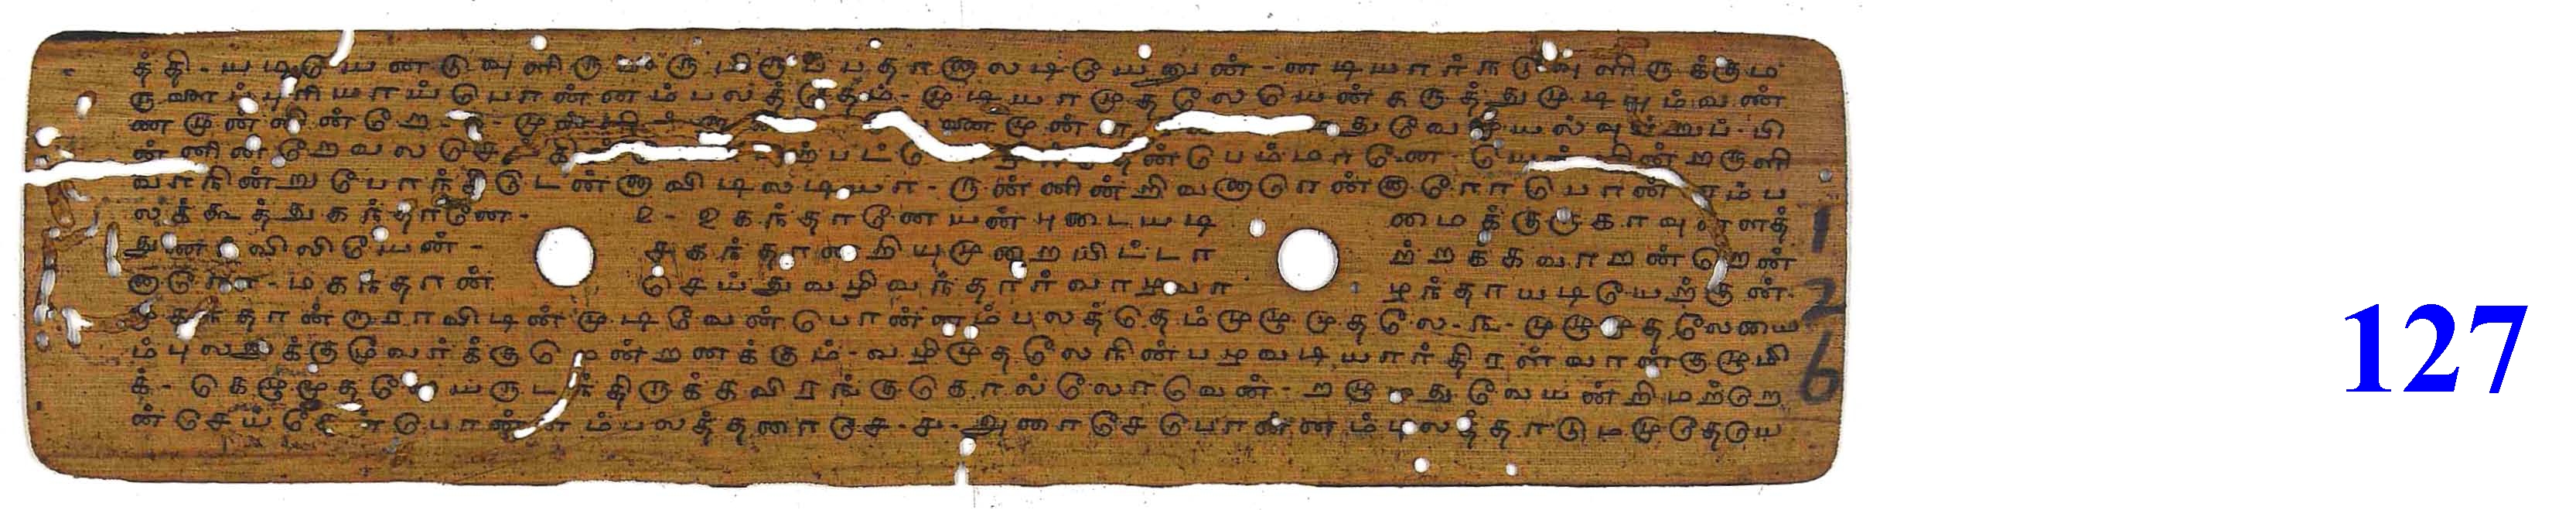 த்தி - யடியேயனடுவுளிருவீருமிருப்பதானாலடியேயனுன் - னடியார்நடுவுளிருக்கும
ருளைப்புரியாய்பொன்னம்பலத்தெம் - முடியாமுதலேயென்கருத்துமுடியும்வண்
ணமுன்னின்றே - க - முன்னின் முன் துவேமுயல்வுற்றுப் - பி
ன்னின்றேவலசெ கி பிற்பட்டெ ந்தேன்பெம்மானே - யென்னின்றருளி
வரநின்றுபோந்திடென்னாவிடிலடியா - ருன்னின்றிவனாரென்னாரோபொன்னம்ப
லக்கூத்துகந்தானே - ௨ - உகந்தானேயன்புடையடிமைக்குருகாவுள்ளத்
துணர்விலியேன் - சகந்தானறியமுறையிட்டாற்றக்கவாறன்றென்
னாரோ - மகந்தான்செய்துவழிவந்தார்வாழவாழந்தாயடியேயற்குன் -
முகந்தான்றாராவிடின்முடிவேன்பொன்னம்பலத்தெம்முழுமுதலே - ௩ - முழுமுதலேயை
ம்புலனுக்குமூவர்க்குமென்றனக்கும் - வழிமுதலேநின்பழவடியார்திரள்வான்குழுமி
க் - கெழுமுதலேயருடந்திருக்கவிரங்குகொல்லோவென் - றழுமதுவேயன்றிமற்றெற
ன்செய்கேன்பொன்னம்பலத்தரைசே - ௪ - அரைசேபொன்னம்பலத்தாடுமமுதேய
126
127